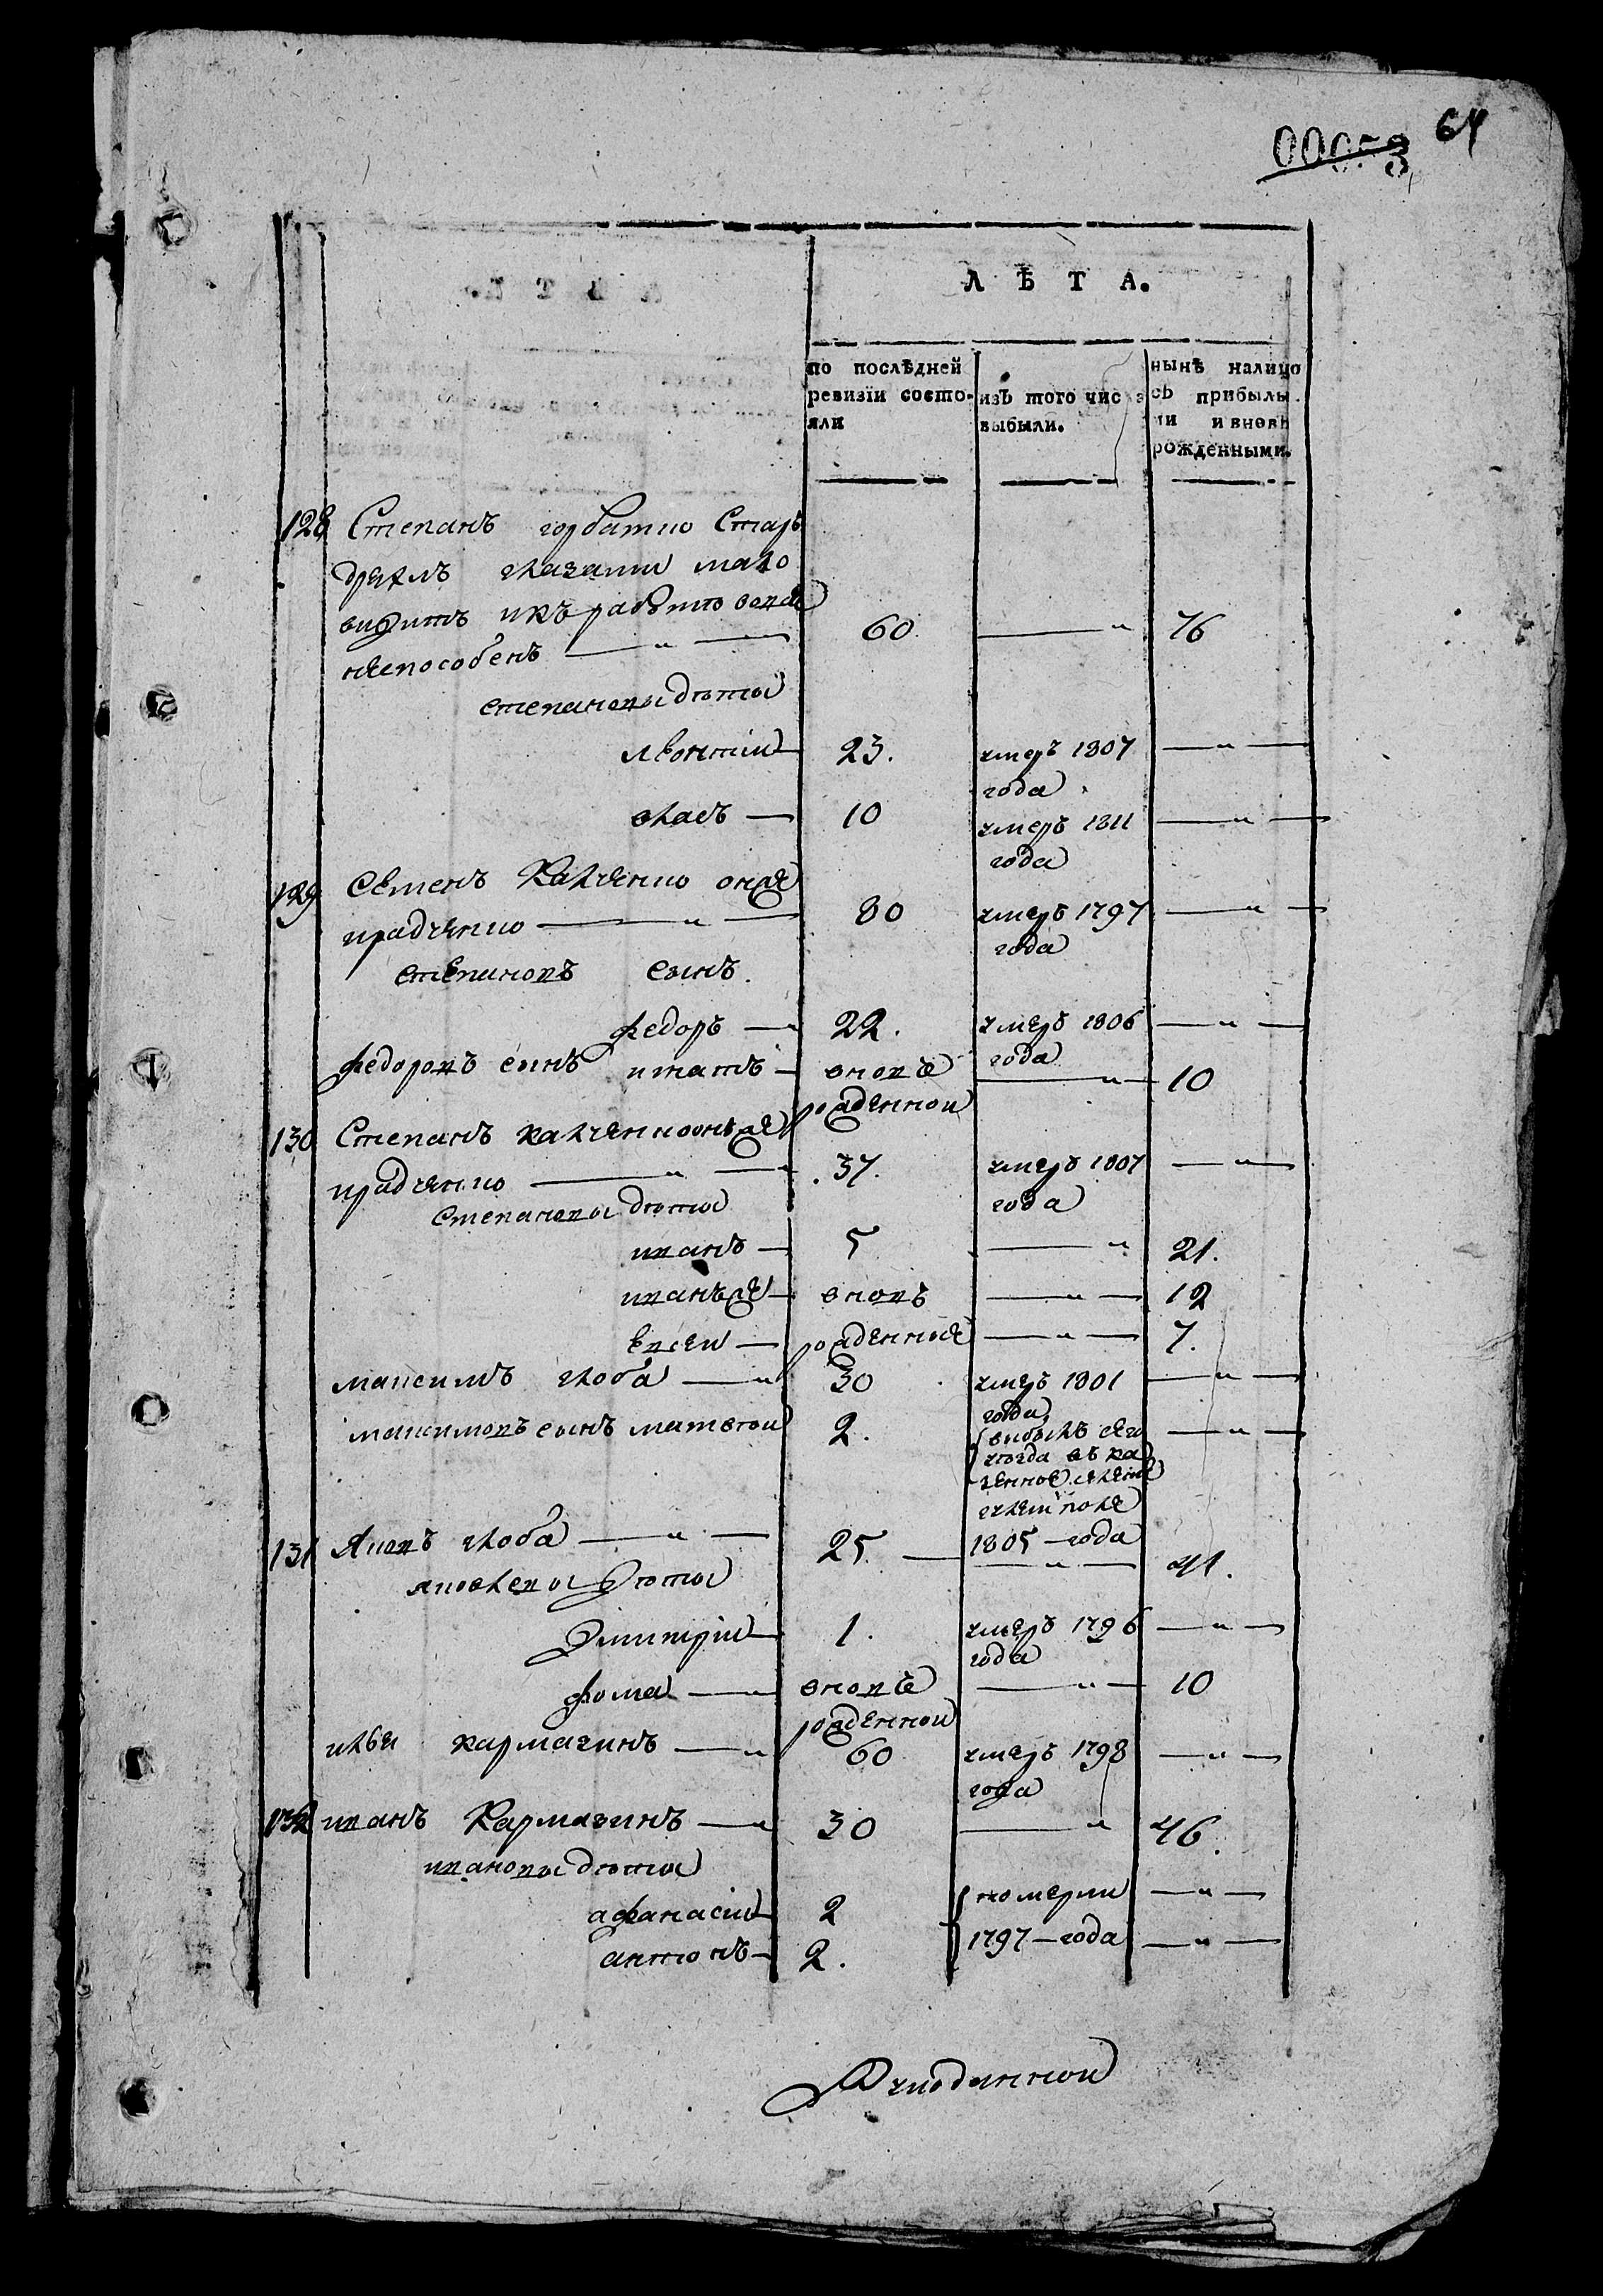 64
ЛѢТА.
по послѣдней
ревизіи состо-
яли
изъ того числа
выбыли.
нынѣ налицо
съ прибылы
ми и вновь
рожденными.
128 Степанъ горбатко старъ
дряхлъ глазами мало
видитъ икъ работѣ вовсе
неспособенъ — " — 60. — " 76
степановы дѣти
леонтіи 23. умеръ 1807 — " —
года
власъ — 10 умеръ 1811 — " —
года
129 Семенъ Калченко онже
Кравченко — " — 80 умеръ 1797 — " —
года
степановъ сынъ.
федоръ — 22. умеръ 1806 — " —
года
федоровъ сынъ игнатъ — вновѣ — " — 10
рожденной
130 Степанъ калченко онъже
Кравченко — " — 37. умеръ 1807 — " —
года
степановы дѣти
иванъ — 5 — " 21.
иванъже — вновъ — " — 12
евсеи — рожденные — " — 7.
максимъ глоба — " 30 умеръ 1801 — " —
года
максимовъ сынъ матвеи 2. — " —
1805 — года
131 Яковъ глоба — " — 25. — — " — 41.
яковлевы дѣти
Димитріи 1. умеръ 1796 — " —
года
фома — " вновѣ — " — 10
рожденной
илья кармазинъ — " 60 умеръ 1798 — " —
года
132 иванъ Кармазинъ — " 30 — " 46.
ивановы дѣти
афанасіи 2 померли — " —
антонъ — 2. 1797 — года — " —